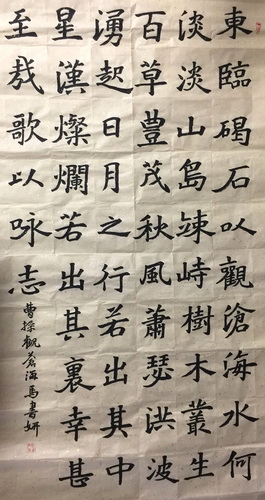 東臨碣石以觀滄海水何
淡淡山島竦峙樹木叢生
百草豊茂秋風蕭瑟洪波
湧起日月之行若出其中
星漢燦爛若出其裏幸甚
至哉歌以咏志
曹操觀蒼海馬書妍